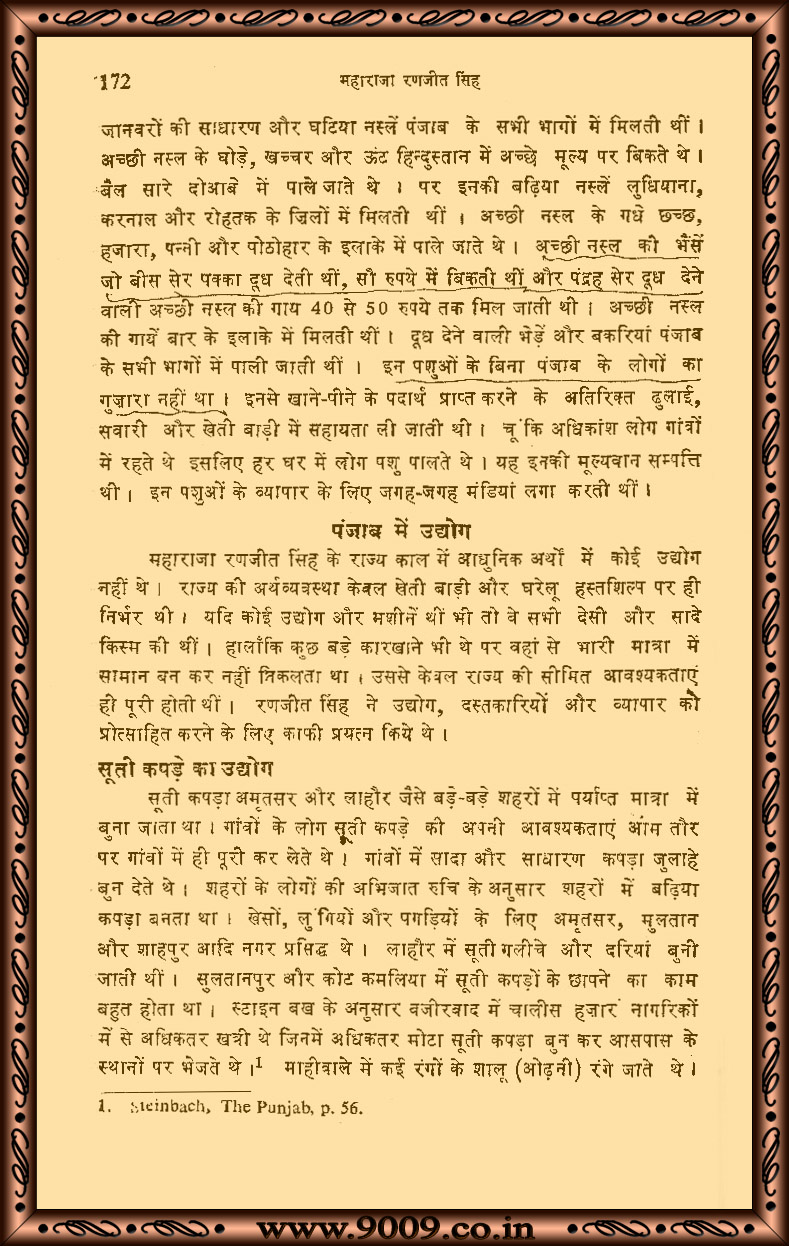 172
महाराजा रणजीत सिंह
जानवरों की साधारण और घटिया नस्लें पंजाब के सभी भागों में मिलती थीं ।
अच्छी नस्ल के घोड़े, खच्चर और ऊंट हिन्दुस्तान में अच्छे मूल्य पर बिकते थे ।
बैल सारे दोआबे में पाले जाते थे । पर इनकी बढ़िया नस्लें लुधियाना,
करनाल और रोहतक के ज़िलों में मिलती थीं । अच्छी नस्ल के गधे छच्छ,
हजारा, पन्नी और पोठोहार के इलाके में पाले जाते थे । अच्छी नस्ल की भैंसें
जो बीस सेर पक्का दूध देती थीं, सौ रुपये में बिकती थीं और पंद्रह सेर दूध देने
वाली अच्छी नस्ल की गाय 40 से 50 रुपये तक मिल जाती थी । अच्छी नस्ल
की गायें बार के इलाके में मिलती थीं । दूध देने वाली भेड़ें और बकरियां पंजाब
के सभी भागों में पाली जाती थीं । इन पशुओं के बिना पंजाब के लोगों का
गुज़ारा नहीं था । इनसे खाने-पीने के पदार्थ प्राप्त करने के अतिरिक्त ढुलाई,
सवारी और खेती बाड़ी में सहायता ली जाती थी । चूंकि अधिकांश लोग गांवों
में रहते थे इसलिए हर घर में लोग पशु पालते थे । यह इनकी मूल्यवान सम्पत्ति
थी । इन पशुओं के व्यापार के लिए जगह-जगह मंडियां लगा करती थीं ।
पंजाब में उद्योग
महाराजा रणजीत सिंह के राज्य काल में आधुनिक अर्थों में कोई उद्योग
नहीं थे । राज्य की अर्थव्यवस्था केवल खेती बाड़ी और घरेलू हस्तशिल्प पर ही
निर्भर थी । यदि कोई उद्योग और मशीनें थीं भी तो वे सभी देसी और सादे
किस्म की थीं । हालाँकि कुछ बड़े कारखाने भी थे पर वहां से भारी मात्रा में
सामान बन कर नहीं निकलता था । उससे केवल राज्य की सीमित आवश्यकताएं
ही पूरी होती थीं । रणजीत सिंह ने उद्योग, दस्तकारियों और व्यापार को
प्रोत्साहित करने के लिए काफी प्रयत्न किये थे ।
सूती कपड़े का उद्योग
सूती कपड़ा अमृतसर और लाहौर जैसे बड़े-बड़े शहरों में पर्याप्त मात्रा में
बुना जाता था । गांवों के लोग सूती कपड़े की अपनी आवश्यकताएं आम तौर
पर गांवों में ही पूरी कर लेते थे । गांवों में सादा और साधारण कपड़ा जुलाहे
बुन देते थे । शहरों के लोगों की अभिजात रुचि के अनुसार शहरों में बढ़िया
कपड़ा बनता था । खेसों, लुंगियों और पगड़ियों के लिए अमृतसर, मुलतान
और शाहपुर आदि नगर प्रसिद्ध थे । लाहौर में सूती गलीचे और दरियां बुनी
जाती थीं । सुलतानपुर और कोट कमलिया में सूती कपड़ों के छापने का काम
बहुत होता था । स्टाइन बख के अनुसार वजीरवाद में चालीस हजार नागरिकों
में से अधिकतर खत्री थे जिनमें अधिकतर मोटा सूती कपड़ा बुन कर आसपास के
स्थानों पर भेजते थे ।1 माहीवाले में कई रंगों के शालू (ओढ़नी) रंगे जाते थे ।
1. Steinbach, The Punjab, p. 56.
www.9009.co.in